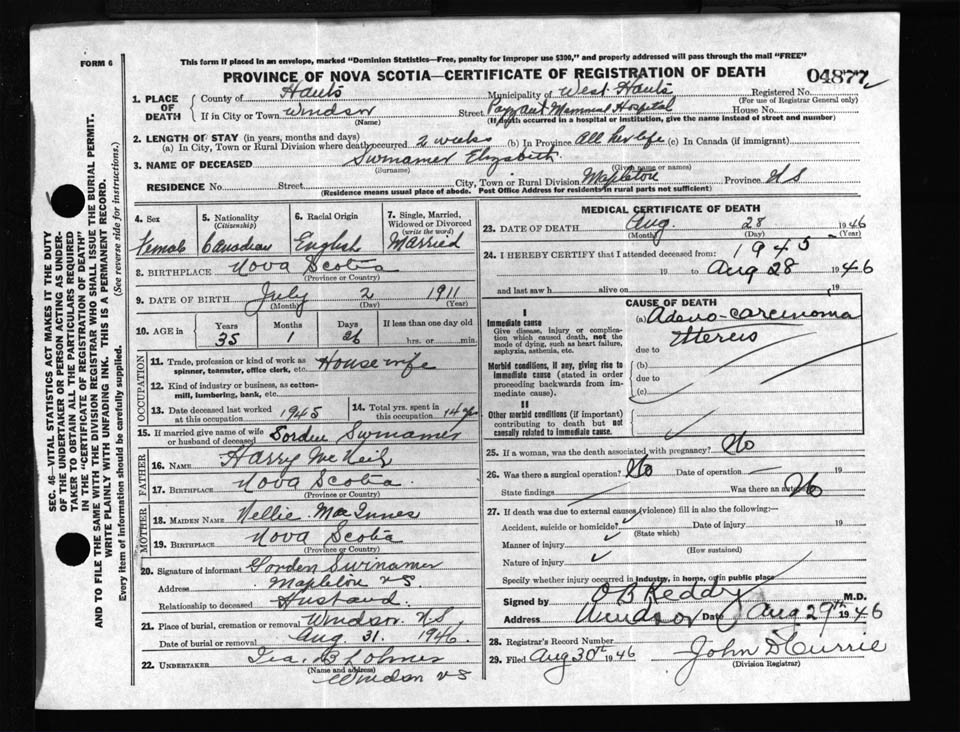 FORM 6
This form if placed in an envelope, marked "Dominion Statistics—Free, penalty for improper use $300," and properly addressed will pass through the mail "FREE"
PROVINCE OF NOVA SCOTIA—CERTIFICATE OF REGISTRATION OF DEATH
04877
1. PLACE OF DEATH
County of Hants Municipality of West Hants Registered No.
(For use of Registrar General only)
If in City or Town Windsor Street Payzant Memorial Hospital House No.
(Name) (If death occurred in a hospital or institution, give the name instead of street and number)
2. LENGTH OF STAY (in years, months and days)
(a) In City, Town or Rural Division where death occurred 2 weeks (b) In Province All her life (c) In Canada (if immigrant)
3. NAME OF DECEASED Swinamer Elizabeth
(Surname) (Given name or names)
RESIDENCE No. Street City, Town or Rural Division Mapleton Province N S
(Residence means usual place of abode. Post Office Address for residents in rural parts not sufficient)
4. Sex Female
5. Nationality (Citizenship) Canadian
6. Racial Origin English
7. Single, Married, Widowed or Divorced (write the word) Married
8. BIRTHPLACE Nova Scotia
(Province or Country)
9. DATE OF BIRTH July 2 1911
(Month) (Day) (Year)
10. AGE in Years Months Days If less than one day old
35 1 26 hrs. or min.
OCCUPATION
11. Trade, profession or kind of work as spinner, teamster, office clerk, etc. Housewife
12. Kind of industry or business, as cotton-mill, lumbering, bank, etc.
13. Date deceased last worked at this occupation 1945
14. Total yrs. spent in this occupation 14 yrs
15. If married give name of wife or husband of deceased Gorden Swinamer
FATHER
16. NAME Harry McNeil
17. BIRTHPLACE Nova Scotia
(Province or Country)
MOTHER
18. MAIDEN NAME Nellie MacInnes
19. BIRTHPLACE Nova Scotia
(Province or Country)
20. Signature of informant Gorden Swinamer
Address Mapleton N S
Relationship to deceased Husband.
21. Place of burial, cremation or removal Windsor N.S
Date of burial or removal Aug. 31. 1946.
22. UNDERTAKER Ira
(Name and Address)
Windsor N S
MEDICAL CERTIFICATE OF DEATH
23. DATE OF DEATH Aug. 28 1946
(Month) (Day) (Year)
24. I HEREBY CERTIFY that I attended deceased from: 1945
19 to Aug 28 1946
and last saw h alive on 19
CAUSE OF DEATH
I
Immediate cause
Give disease, injury or complication which caused death, not the mode of dying, such as heart failure, asphyxia, asthenia, etc.
(a) Adeno-carcinoma
Uterus
due to
Morbid conditions, if any, giving rise to immediate cause (stated in order proceeding backwards from immediate cause).
(b)
due to
(c)
II
Other morbid conditions (if important) contributing to death but not causally related to immediate cause.
25. If a woman, was the death associated with pregnancy? No
26. Was there a surgical operation? No Date of operation 19
State findings Was there an autopsy? No
27. If death was due to external causes (violence) fill in also the following:—
Accident, suicide or homicide? Date of injury 19
(State which)
Manner of injury
(How sustained)
Nature of injury
Specify whether injury occurred in industry, in home, or in public place
Signed by O B Keddy M.D.
Address Windsor Date Aug 29th 1946
28. Registrar's Record Number
29. Filed Aug 30th 1946 John D Currie
(Division Registrar)
SEC. 46—VITAL STATISTICS ACT MAKES IT THE DUTY
OF THE UNDERTAKER OR PERSON ACTING AS UNDERTAKER TO OBTAIN ALL THE PARTICULARS REQUIRED
IN THE "CERTIFICATE OF REGISTRATION OF DEATH"
AND TO FILE THE SAME WITH THE DIVISION REGISTRAR WHO SHALL ISSUE THE BURIAL PERMIT.
WRITE PLAINLY WITH UNFADING INK. THIS IS A PERMANENT RECORD.
Every item of information should be carefully supplied. (See reverse side for instructions.)